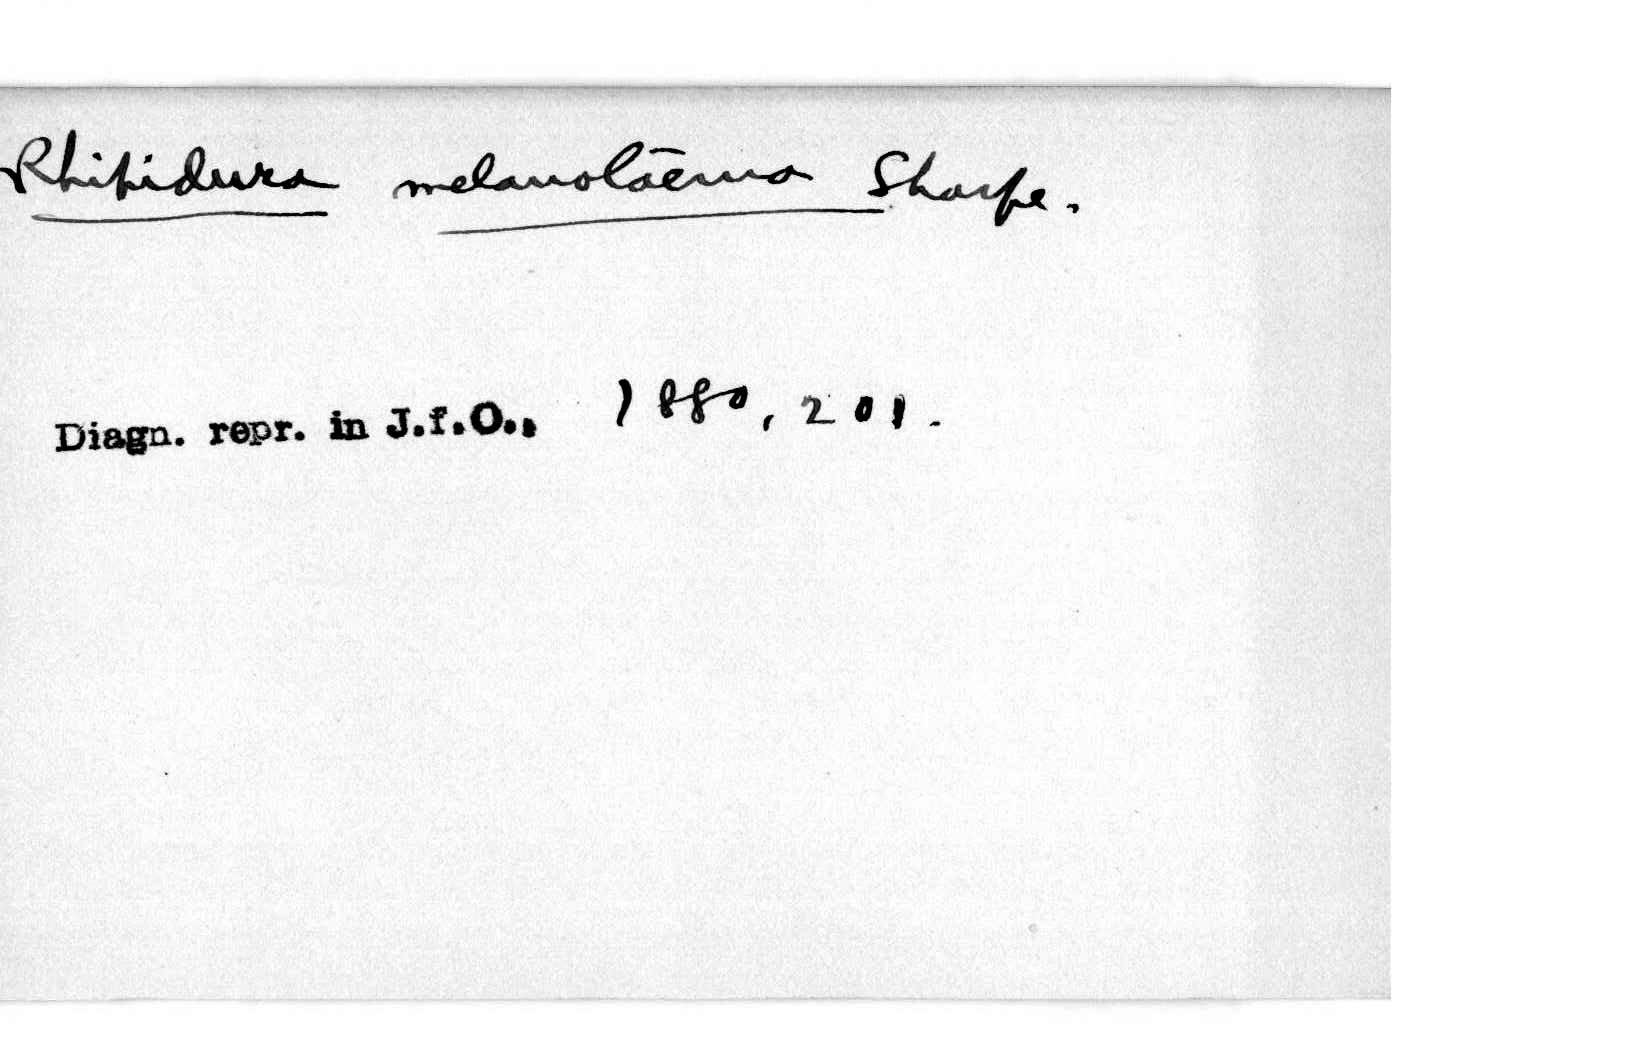 Rhipidura melanolaema Sharpe.
Diagn. repr. in J.f.O., 1880, 201.